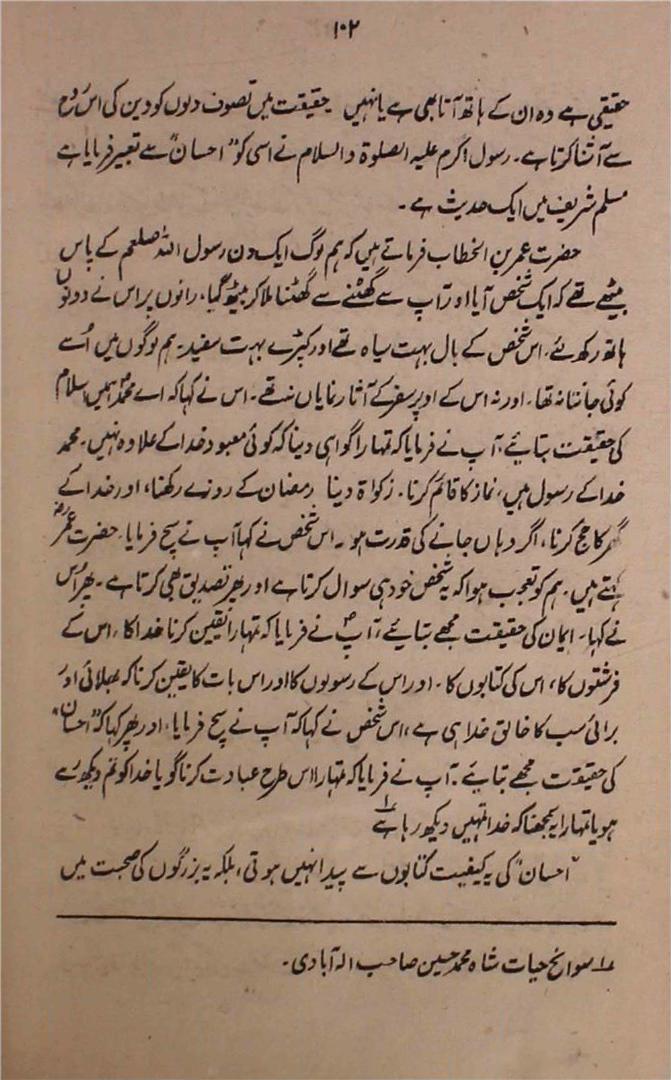 ۱۰۲
حقیقی ہے وہ ان کے ہاتھ آتا بھی ہے یا نہیں حقیقت میں تصوف دلوں کو دین کی اس رُوح
سے آشنا کرتا ہے۔ رسول اکرم علیہ الصلوۃ والسلام نے اسی کو "احسان" سے تعبیر فرمایا ہے
مسلم شریف میں ایک حدیث ہے۔
حضرت عمر بن الخطاب فرماتے ہیں کہ ہم لوگ ایک دن رسول اللہ صلعم کے پاس
بیٹھے تھے کہ ایک شخص آیا اور آپ سے گھٹنے سے گھٹنا ملا کر بیٹھ گیا، رانوں پر اس نے دونوں
ہاتھ رکھ لئے، اس شخص کے بال بہت سیاہ تھے اور کپڑے بہت سفید۔ ہم لوگوں میں اُسے
کوئی جانتا نہ تھا۔ اور نہ اس کے اوپر سفر کے آثار نمایاں تھے۔ اس نے کہا کہ اے محمدؐ ہمیں اسلام
کی حقیقت بتائیے، آپ نے فرمایا کہ تمہارا گواہی دینا کہ کوئی معبود خدا کے علاوہ نہیں۔ محمد
خدا کے رسول ہیں، نماز کا قائم کرنا۔ زکواۃ دینا رمضان کے روزے رکھنا، اور خدا کے
گھر کا حج کرنا، اگر وہاں جانے کی قدرت ہو۔ اس شخص نے کہا آپ نے سچ فرمایا۔ حضرت عمرؓ
کہتے ہیں۔ ہم کو تعجب ہوا کہ یہ شخص خود ہی سوال کرتا ہے اور پھر تصدیق بھی کرتا ہے۔ پھر اُس
نے کہا۔ ایمان کی حقیقت مجھے بتائیے، آپؐ نے فرمایا کہ تمہارا یقین کرنا خدا کا، اس کے
فرشتوں کا، اس کی کتابوں کا۔ اور اس کے رسولوں کا اور اس بات کا یقین کرنا کہ بھلائی اور
برائی سب کا خالق خدا ہی ہے، اس شخص نے کہا کہ آپ نے سچ فرمایا، اور پھر کہا کہ "احسان"
کی حقیقت مجھے بتائیے۔ آپ نے فرمایا کہ تمہارا اس طرح عبادت کرنا گویا خدا کو تم دیکھ رہے
ہو یا تمہارا یہ سمجھنا کہ خدا تمہیں دیکھ رہا ہے ۱؎
"احسان" کی یہ کیفیت کتابوں سے پیدا نہیں ہوتی، بلکہ یہ بزرگوں کی صحبت میں
۱؎ سوانح حیات شاہ محمد حسین صاحب الہ آبادی۔